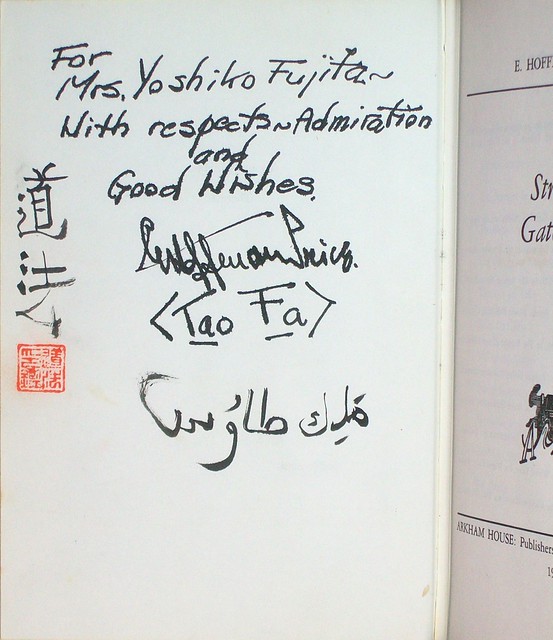 For
Mrs. Yoshiko Fujita~
With respects~Admiration
and
Good Wishes.
<Tao Fa>
道法
مَلِك طاوُس
E. HOFF
Str
Gat
ARKHAM HOUSE: Publishers
19